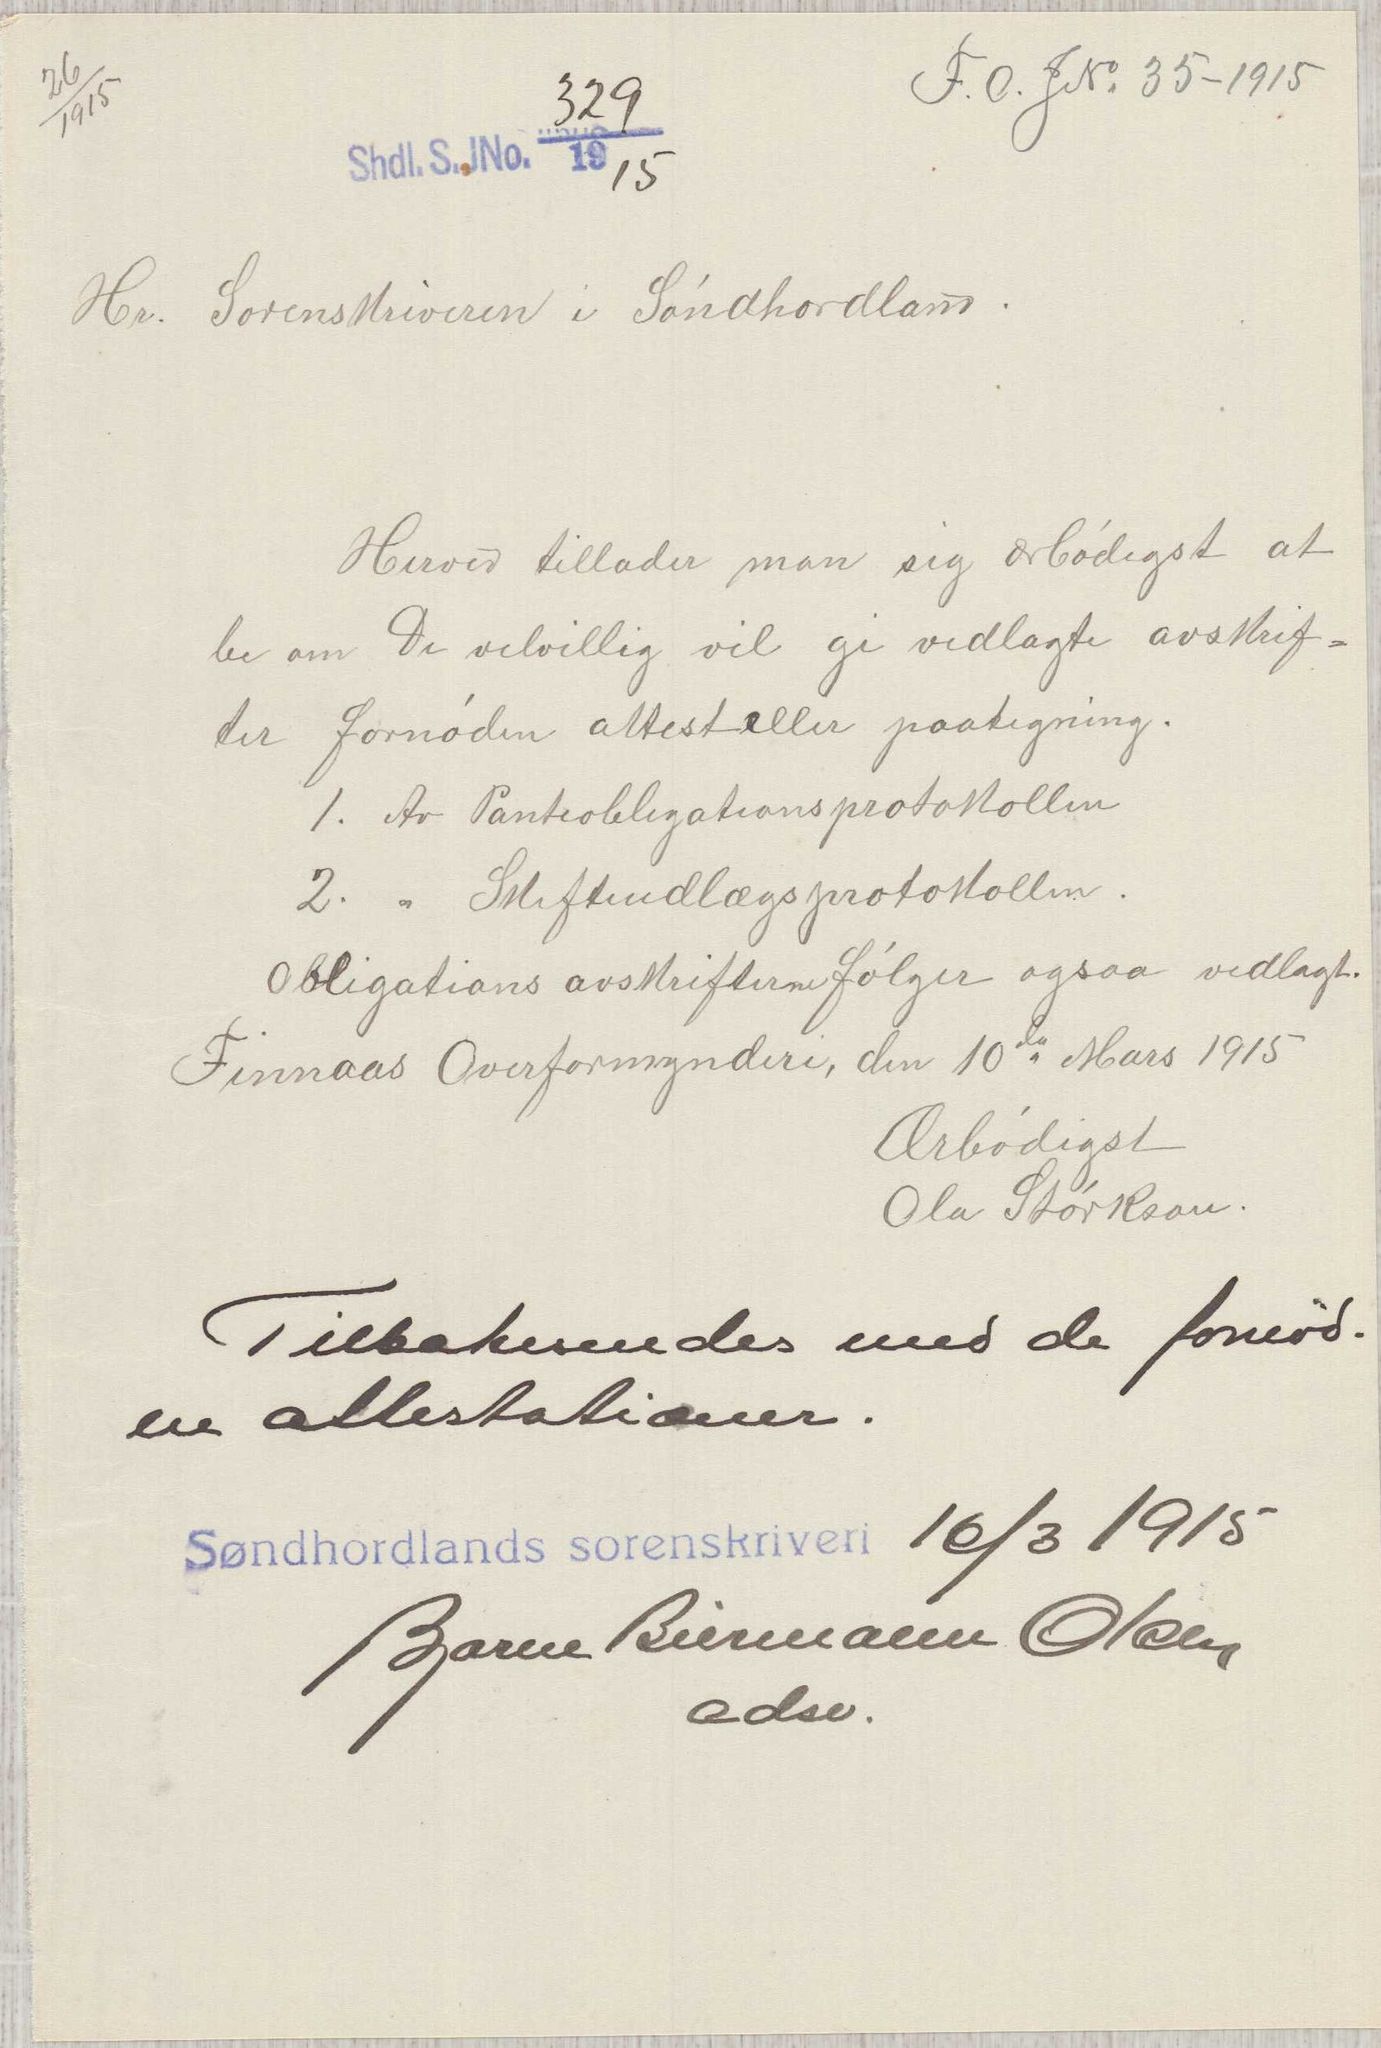 26/1915
F. O. J.No. 35-1915
329
Shdl. S. JNo.
1915
Hr. Sorenskriveren i Söndhordland.
Herved tillader man sig ærbödigst at
be om De velvillig vil gi vedlagte avskrif=
ter fornöden attest eller paategning.
1. Av Panteobligationsprotokollen
2. " Skifteudlægsprotokollen.
Obligations avskrifterne fölger ogsaa vedlagt.
Finnaas Overformynderi, den 10de Mars 1915
Ærbödigst
Ola Störkson.
Tilbakesendes med de fornöd-
ne attestationer.
Søndhordlands sorenskriveri 16/3 1915
Bjarne Biermann Olsen
edsv.